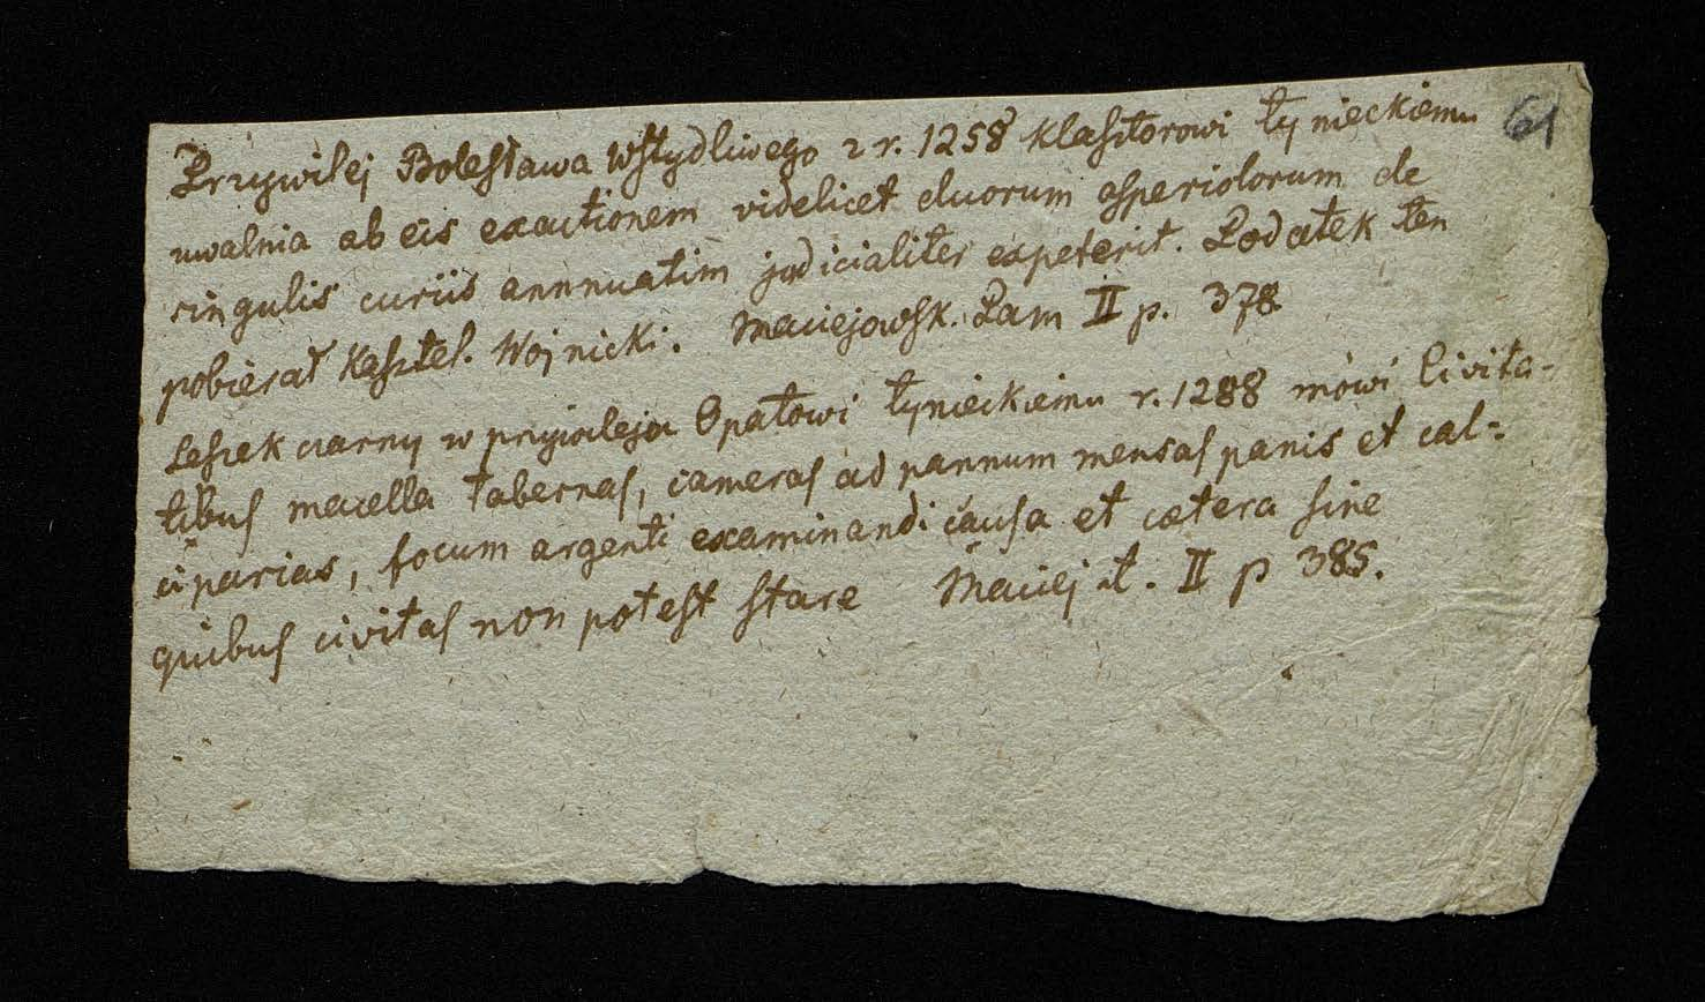 61
Przywilej Bolesława Wstydliwego z r. 1258 klasztorowi tynieckiemu
uwalnia ab eis exactionem videlicet duorum asperiolorum de
singulis curiis annnuatim judicialiter expeterit. Podatek ten
pobierał Kasztel. Wojnicki. Maciejowsk. Pam II p. 378
Leszek czarny w przywileju Opatowi tynieckiemu r. 1288 mówi Civita-
tibus macella tabernas, cameras ad pannum mensas panis et cal-
ciparias, focum argenti examinandi causa et cætera sine
quibus civitas non potest stare Maciej t. II p 385.